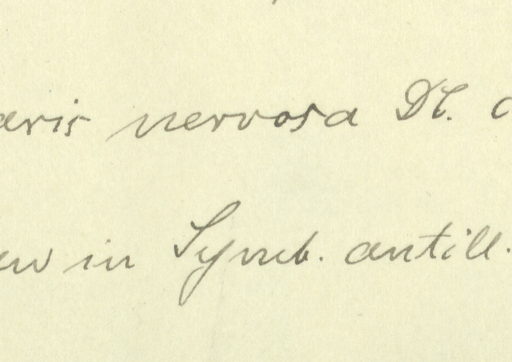 aris nervosa
in Symb. antill.